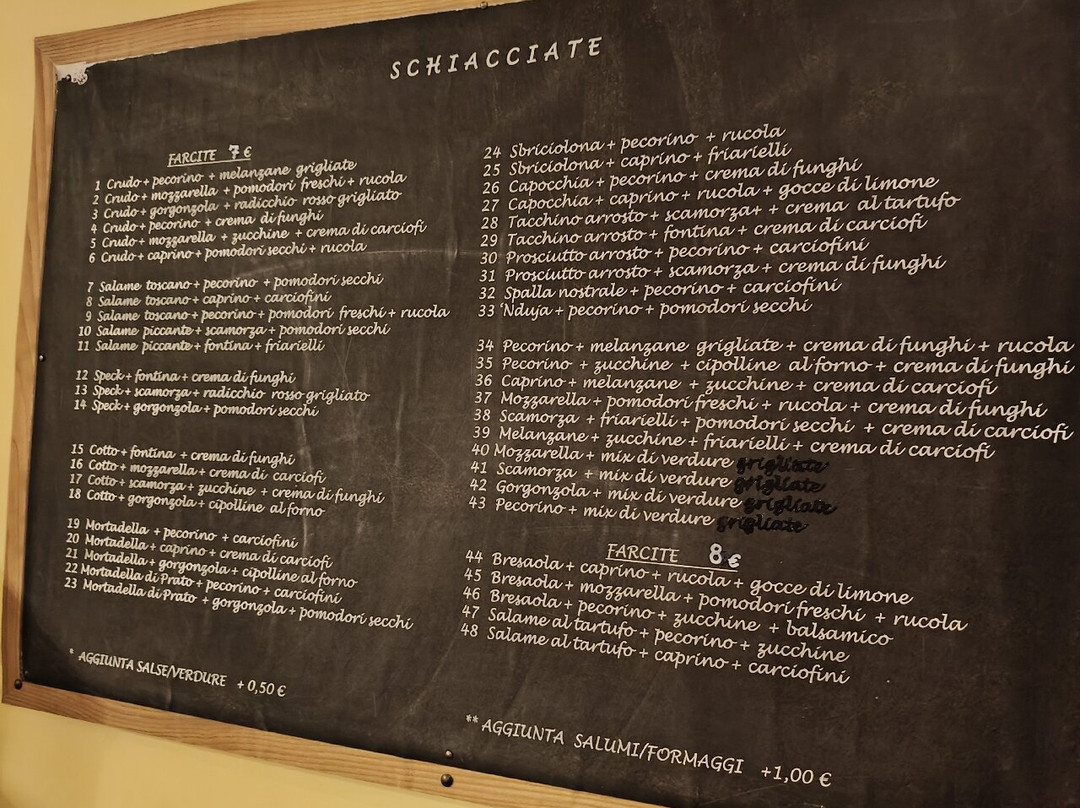 SCHIACCIATE
FARCITE 7 €
1 Crudo + pecorino + melanzane grigliate
2 Crudo + mozzarella + pomodori freschi + rucola
3 Crudo + gorgonzola + radicchio rosso grigliato
4 Crudo + pecorino + crema di funghi
5 Crudo + mozzarella + zucchine + crema di carciofi
6 Crudo + caprino + pomodori secchi + rucola
7 Salame toscano + pecorino + pomodori secchi
8 Salame toscano + caprino + carciofini
9 Salame toscano + pecorino + pomodori freschi + rucola
10 Salame piccante + scamorza + pomodori secchi
11 Salame piccante + fontina + friarielli
12 Speck + fontina + crema di funghi
13 Speck + scamorza + radicchio rosso grigliato
14 Speck + gorgonzola + pomodori secchi
15 Cotto + fontina + crema di funghi
16 Cotto + mozzarella + crema di carciofi
17 Cotto + scamorza + zucchine + crema di funghi
18 Cotto + gorgonzola + cipolline al forno
19 Mortadella + pecorino + carciofini
20 Mortadella + caprino + crema di carciofi
21 Mortadella + gorgonzola + cipolline al forno
22 Mortadella di Prato + pecorino + carciofini
23 Mortadella di Prato + gorgonzola + pomodori secchi
* AGGIUNTA SALSE/VERDURE +0,50 €
24 Sbriciolona + pecorino + rucola
25 Sbriciolona + caprino + friarielli
26 Capocchia + pecorino + crema di funghi
27 Capocchia + caprino + rucola + gocce di limone
28 Tacchino arrosto + scamorza+ + crema al tartufo
29 Tacchino arrosto + fontina + crema di carciofi
30 Prosciutto arrosto + pecorino + carciofini
31 Prosciutto arrosto + scamorza + crema di funghi
32 Spalla nostrale + pecorino + carciofini
33 'Nduja + pecorino + pomodori secchi
34 Pecorino + melanzane grigliate + crema di funghi + rucola
35 Pecorino + zucchine + cipolline al forno + crema di funghi
36 Caprino + melanzane + zucchine + crema di carciofi
37 Mozzarella + pomodori freschi + rucola + crema di funghi
38 Scamorza + friarielli + pomodori secchi + crema di carciofi
39 Melanzane + zucchine + friarielli + crema di carciofi
40 Mozzarella + mix di verdure grigliate
41 Scamorza + mix di verdure grigliate
42 Gorgonzola + mix di verdure grigliate
43 Pecorino + mix di verdure grigliate
FARCITE 8 €
44 Bresaola + caprino + rucola + gocce di limone
45 Bresaola + mozzarella + pomodori freschi + rucola
46 Bresaola + pecorino + zucchine + balsamico
47 Salame al tartufo + pecorino + zucchine
48 Salame al tartufo + caprino + carciofini
** AGGIUNTA SALUMI/FORMAGGI +1,00 €